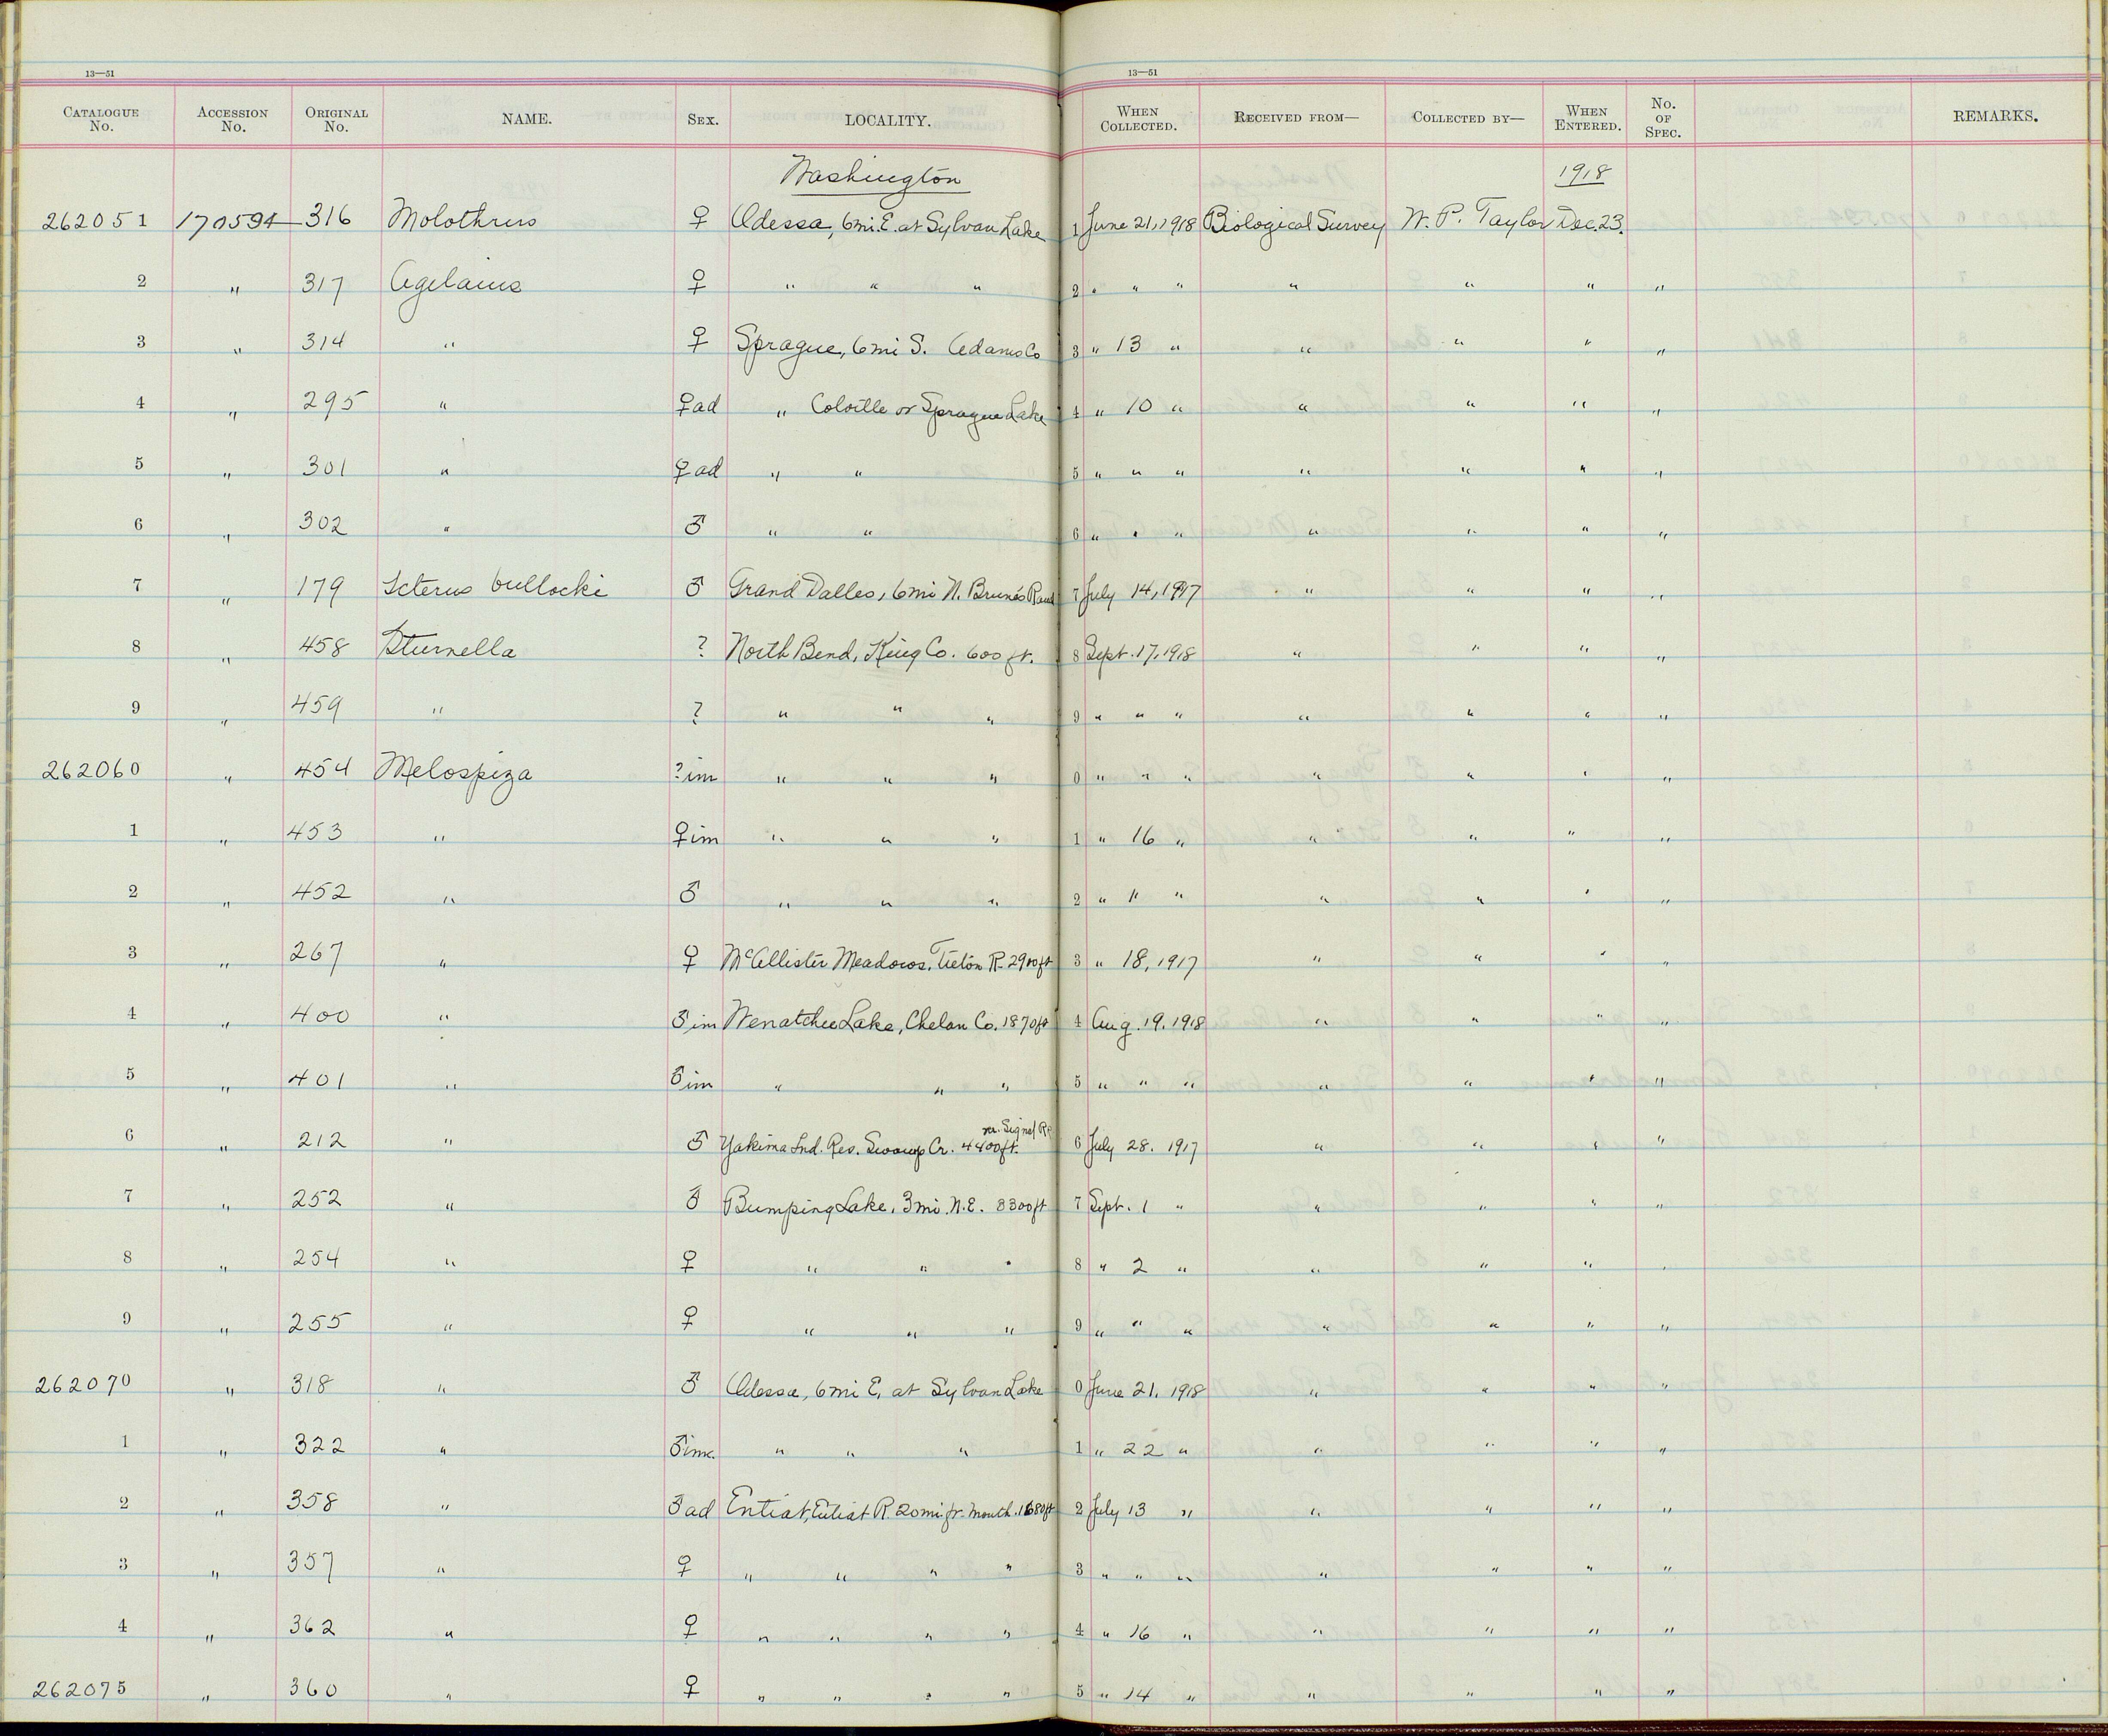 13—51 13—51
CATALOGUE No. ACCESSION No. ORIGINAL No. NAME. SEX. LOCALITY. WHEN COLLECTED. RECEIVED FROM— COLLECTED BY— WHEN ENTERED. No. OF SPEC. REMARKS.
Washington 1918
262051 170594 316 Molothrus ♀ Odessa, 6mi. E. at Sylvan Lake 1 June 21, 1918 Biological Survey W. P. Taylor Dec. 23.
2 " 317 Agelaius ♀ " " " 2 " " " " " " "
3 " 314 " ♀ Sprague, 6mi S. Adams Co 3 " 13 " " " " "
4 " 295 " ♀ad " Colville or Sprague Lake 4 " 10 " " " " "
5 " 301 " ♀ad " " 5 " " " " " " "
6 " 302 " ♂ " " 6 " " " " " " "
7 " 179 Icterus bullocki ♂ Grand Dalles, 6mi N. 7 July 14, 1917 " " " "
8 " 458 Sturnella ? North Bend, King Co. 600 ft. 8 Sept. 17, 1918 " " " "
9 " 459 " ? " " " 9 " " " " " " "
262060 " 454 Melospiza ? im " " " 0 " " " " " " "
1 " 453 " ♀im " " " 1 " 16 " " " " "
2 " 452 " ♂ " " " 2 " " " " " " "
3 " 267 " ♀ McAllister Meadows, Tieton R. 2900ft 3 " 18, 1917 " " " "
4 " 400 " ♂ im Wenatchee Lake, Chelan Co. 1870ft 4 Aug. 19, 1918 " " " "
5 " 401 " ♂im " " " 5 " " " " " " "
6 " 212 " ♂ Yakima Ind. Res. Cr. 4400ft. nr. Signal 6 July 28. 1917 " " " "
7 " 252 " ♂ Bumping Lake, 3mi. N.E. 3300ft 7 Sept. 1 " " " " "
8 " 254 " ♀ " " " 8 " 2 " " " " "
9 " 255 " ♀ " " " 9 " " " " " " "
262070 " 318 " ♂ Odessa, 6mi E, at Sylvan Lake 0 June 21, 1918 " " " "
1 " 322 " ♂im. " " " 1 " 22 " " " " "
2 " 358 " ♂ad Entiat, Entiat R. 20mi. fr. mouth. 1680ft 2 July 13 " " " " "
3 " 357 " ♀ " " " " 3 " " " " " " "
4 " 362 " ♀ " " " " 4 " 16 " " " " "
262075 " 360 " ♀ " " " " 5 " 14 " " " " "